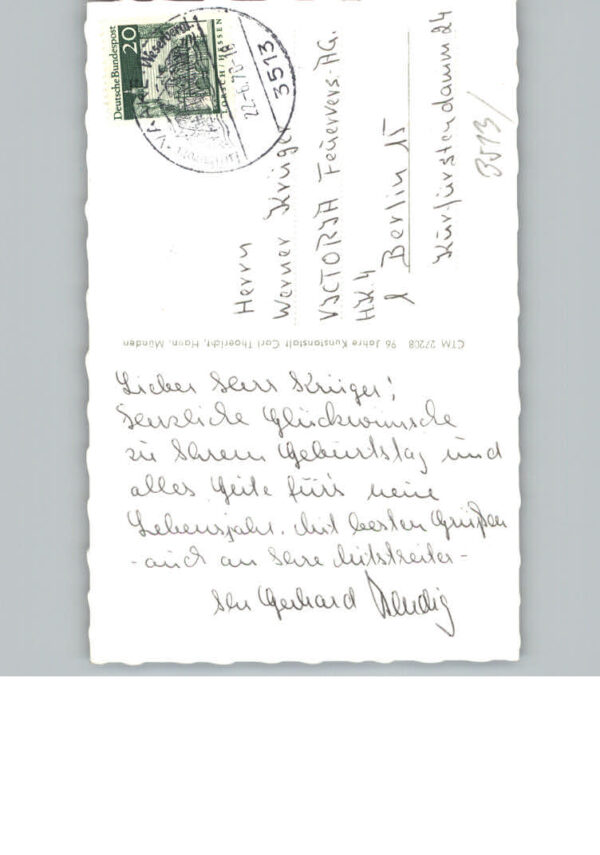 Deutsche Bundespost
20
LORSCH/HESSEN
3513
22.-6.70-18
Herrn
Werner Krüger
VICTORIA Feuervers.-AG.
HK4
1 Berlin 15
Kurfürstendamm 24
3513/
CTM 27208 96 Jahre Kunstanstalt Carl Thoericht, Hann. Münden
Lieber Herr Krüger!
Herzliche Glückwünsche
zu Ihrem Geburtstag und
alles Gute für's neue
Lebensjahr. Mit besten Grüßen
- auch an Ihre Mitstreiter -
Ihr Gerhard